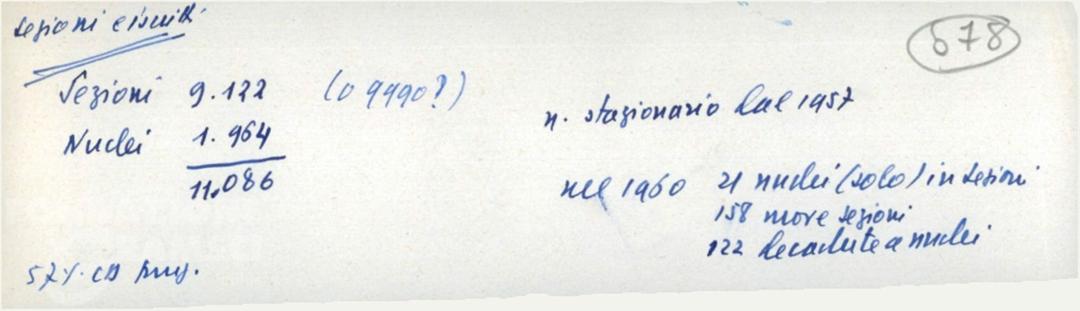 Sezioni e iscritti
678
Sezioni 9.122 (o 9990?)
Nuclei 1.964
11.086
n. stazionario dal 1957
nel 1960 21 nuclei (solo) in sezioni
158 nuove sezioni
122 decadute a nuclei
57%